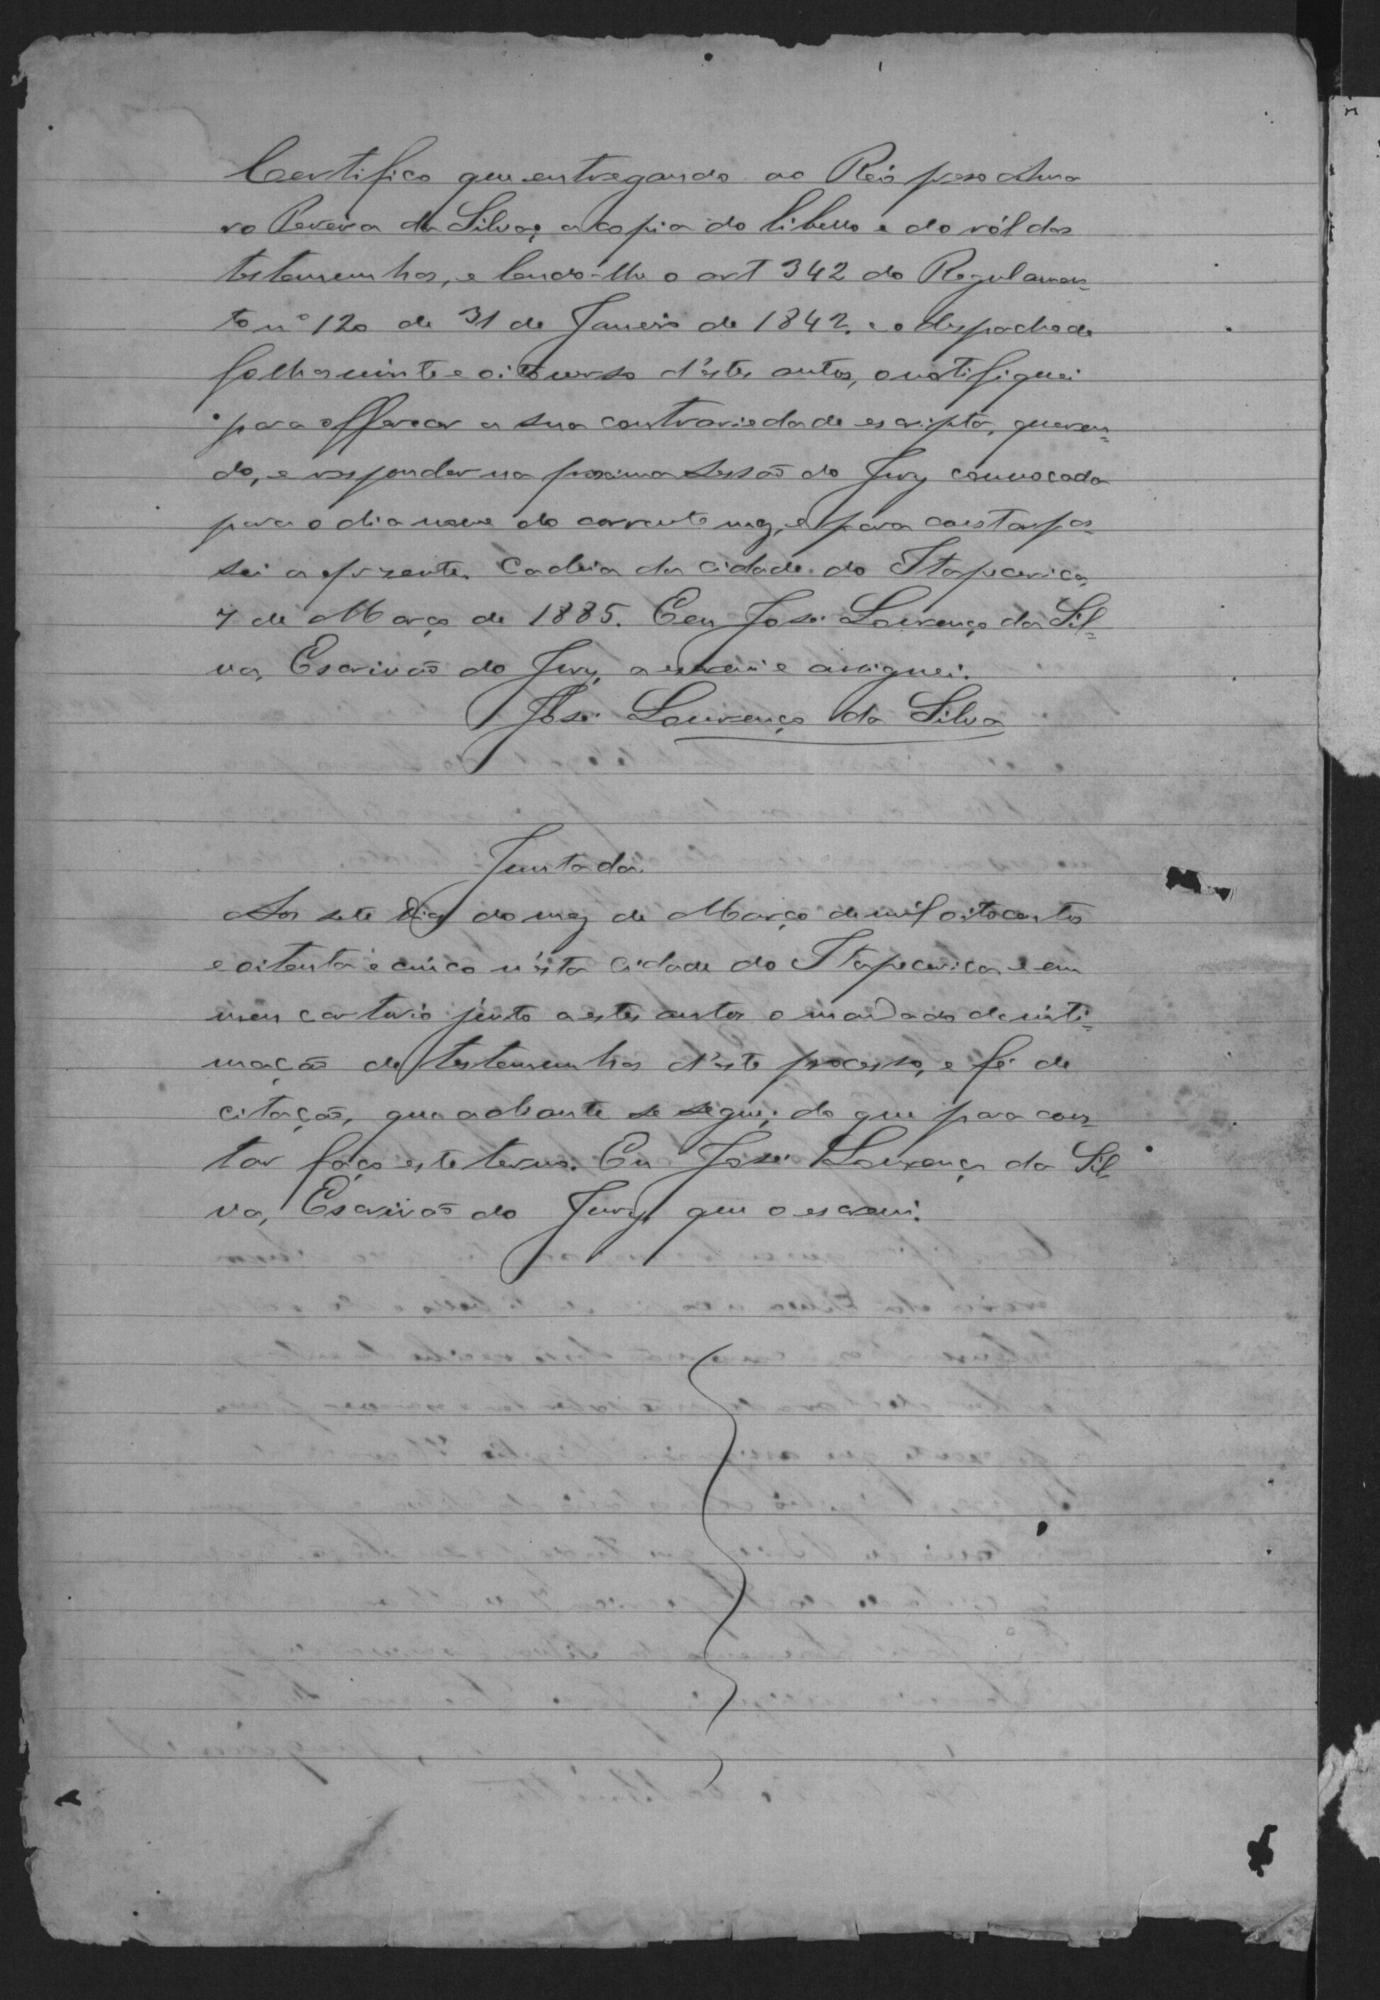 Certifico que entregando ao Réo preso Ama
ro Pereira da Silva, a copia do libello e do ról das
testemunhas, e lendo-lhe o art 342 do Regulamen-
to nº 120 de 31 de Janeiro de 1842. e o despacho de
folhas vinte e oito verso d'estes autos, o notifiquei
para offerecer a sua contrariedade escripta, queren-
do, e responder na proxima Sessão do Jury convocada
para o dia nove do corrente mez, e para constar pas-
sei a prezente. Cadeia da cidade do Itapecerica
7 de Março de 1885. Eeu José Lourenço da Sil-
va, Escrivão do Jury, a escrevi e assignei.
José Lourenço da Silva
Juntada
Aos sete dias do mez de Março de mil oitocentos
e oitenta e cinco n'esta cidade do Itapecerica e em
meu cartorio junto a estes autos o mandado de inti-
mação de testemunhas d'este processo, e fé de
citação, que adiante se segue; do que para cons
tar faço este termo. Eu José Lourenço da Sil
va, Escrivão do Jury, que o escrevi.